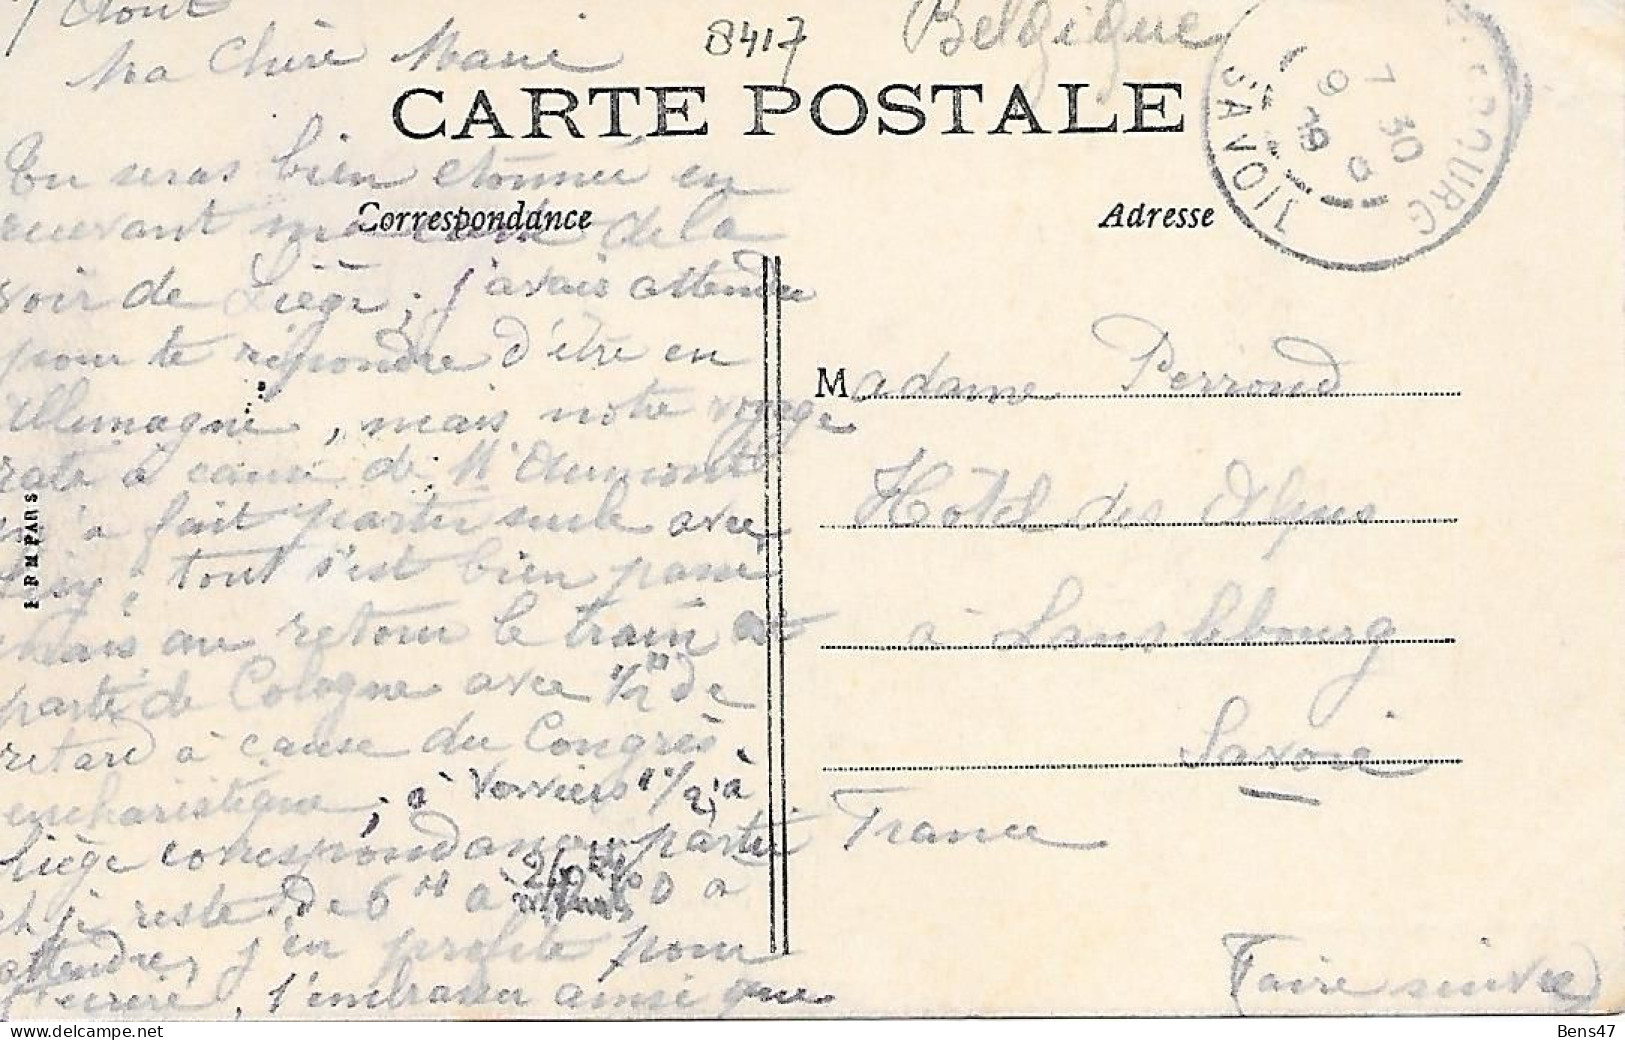 Août
Ma Chère Marie
8417
Belgique
CARTE POSTALE
Correspondance
Adresse
SAVOIE
7 30
Tu seras bien étonnée en
recevant ma carte de la
de Liège ; j'avais attendre
pour te répondre d'être en
Allemagne, mais notre voyage
raté à cause de Mr Aumont
m'a fait partir seule avec
; tout s'est bien passé
Mais au retour le train est
parti de Cologne avec 1/2 H de
retard à cause du Congrès
eucharistique ; à Verviers 1/2, à
Liège correspondance partie
et je reste de 6 H à à
attendre, j'en profite pour
t'écrire, t'embrasser ainsi que
Madame Perroud
Hôtel des Alpes
à Lanslebourg
Savoie
France
(Faire suivre)
PARIS
Bens47